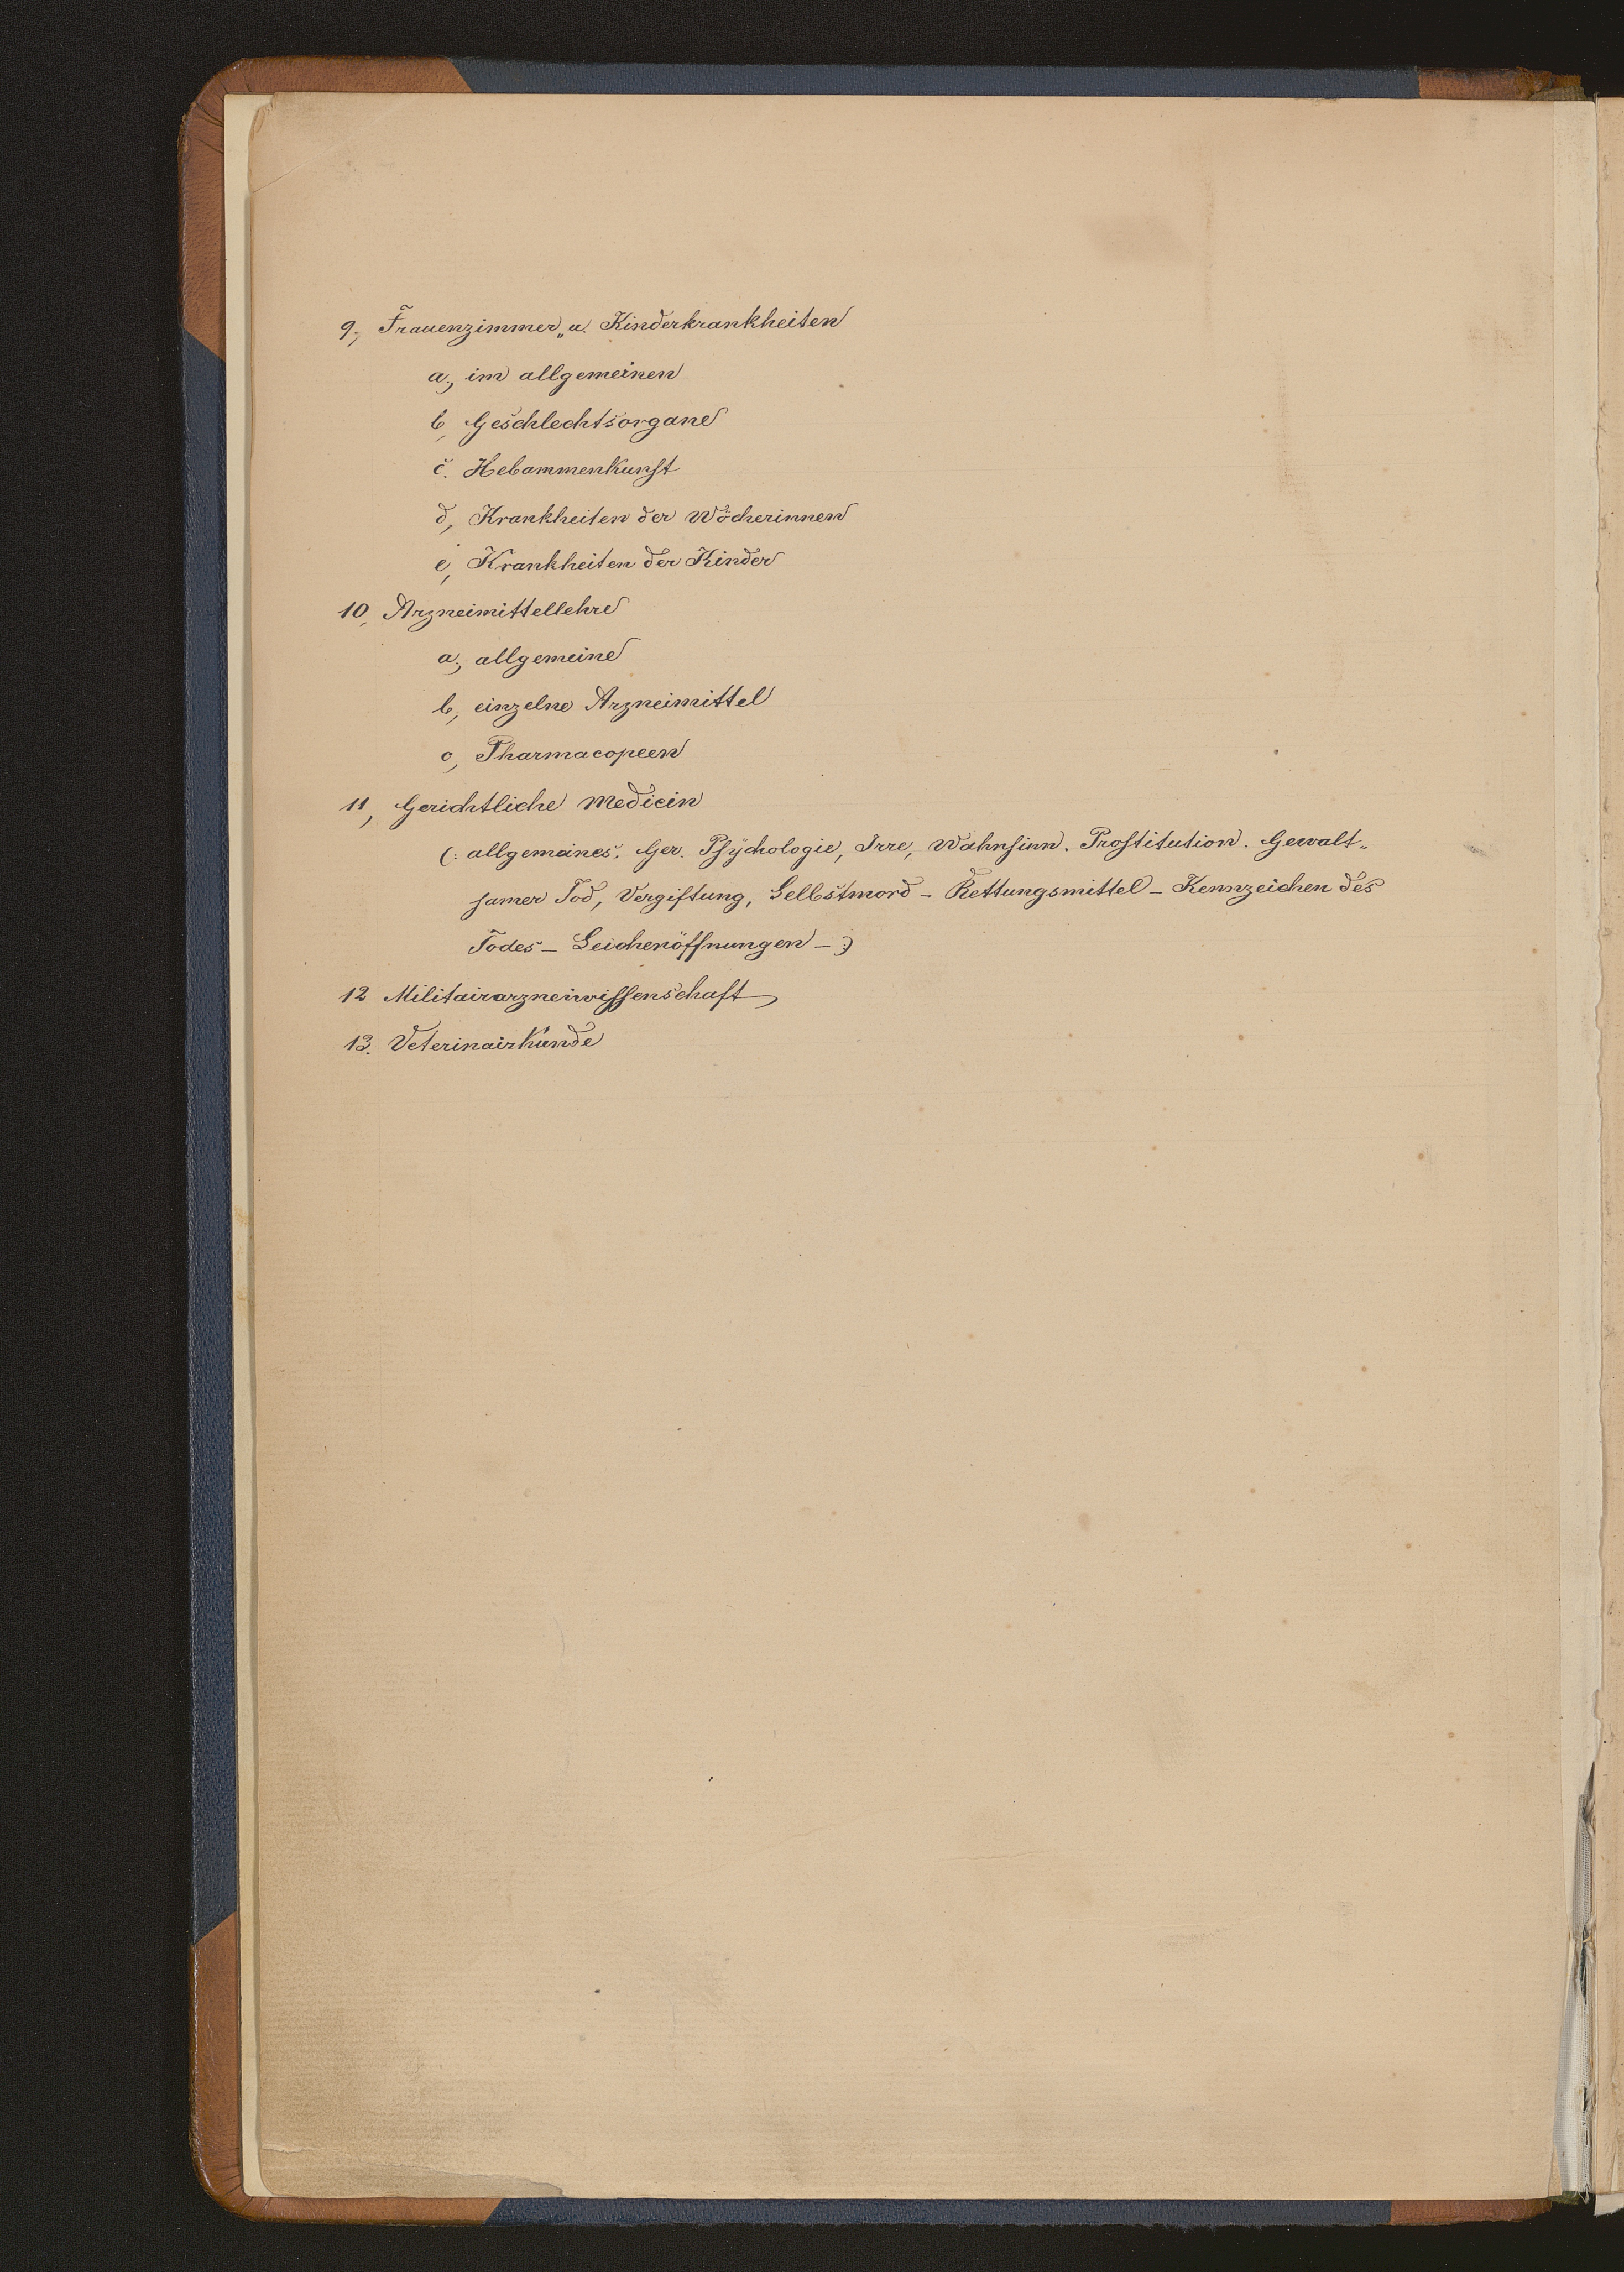 9, Frauenzimmer„ u. Kinderkrankheiten
a, im allgemeinen
b, Geschlechtsorgane
c. Hebammenkunst
d, Krankheiten der Wöcherinnen
e, Krankheiten der Kinder
10, Arzneimittellehre
a, allgemeine
b, einzelne Arzneimittel
c, Pharmacopeen
11, Gerichtliche Medicin
(: allgemeines. Ger. Psÿchologie, Irre, Wahnsinn. Prostitution. Gewalt„
samer Tod, Vergiftung, Selbstmord – Rettungsmittel – Kennzeichen des
Todes – Leichenöffnungen – :)
12 Militairarzneiwissenschaft
13. Veterinairkunde